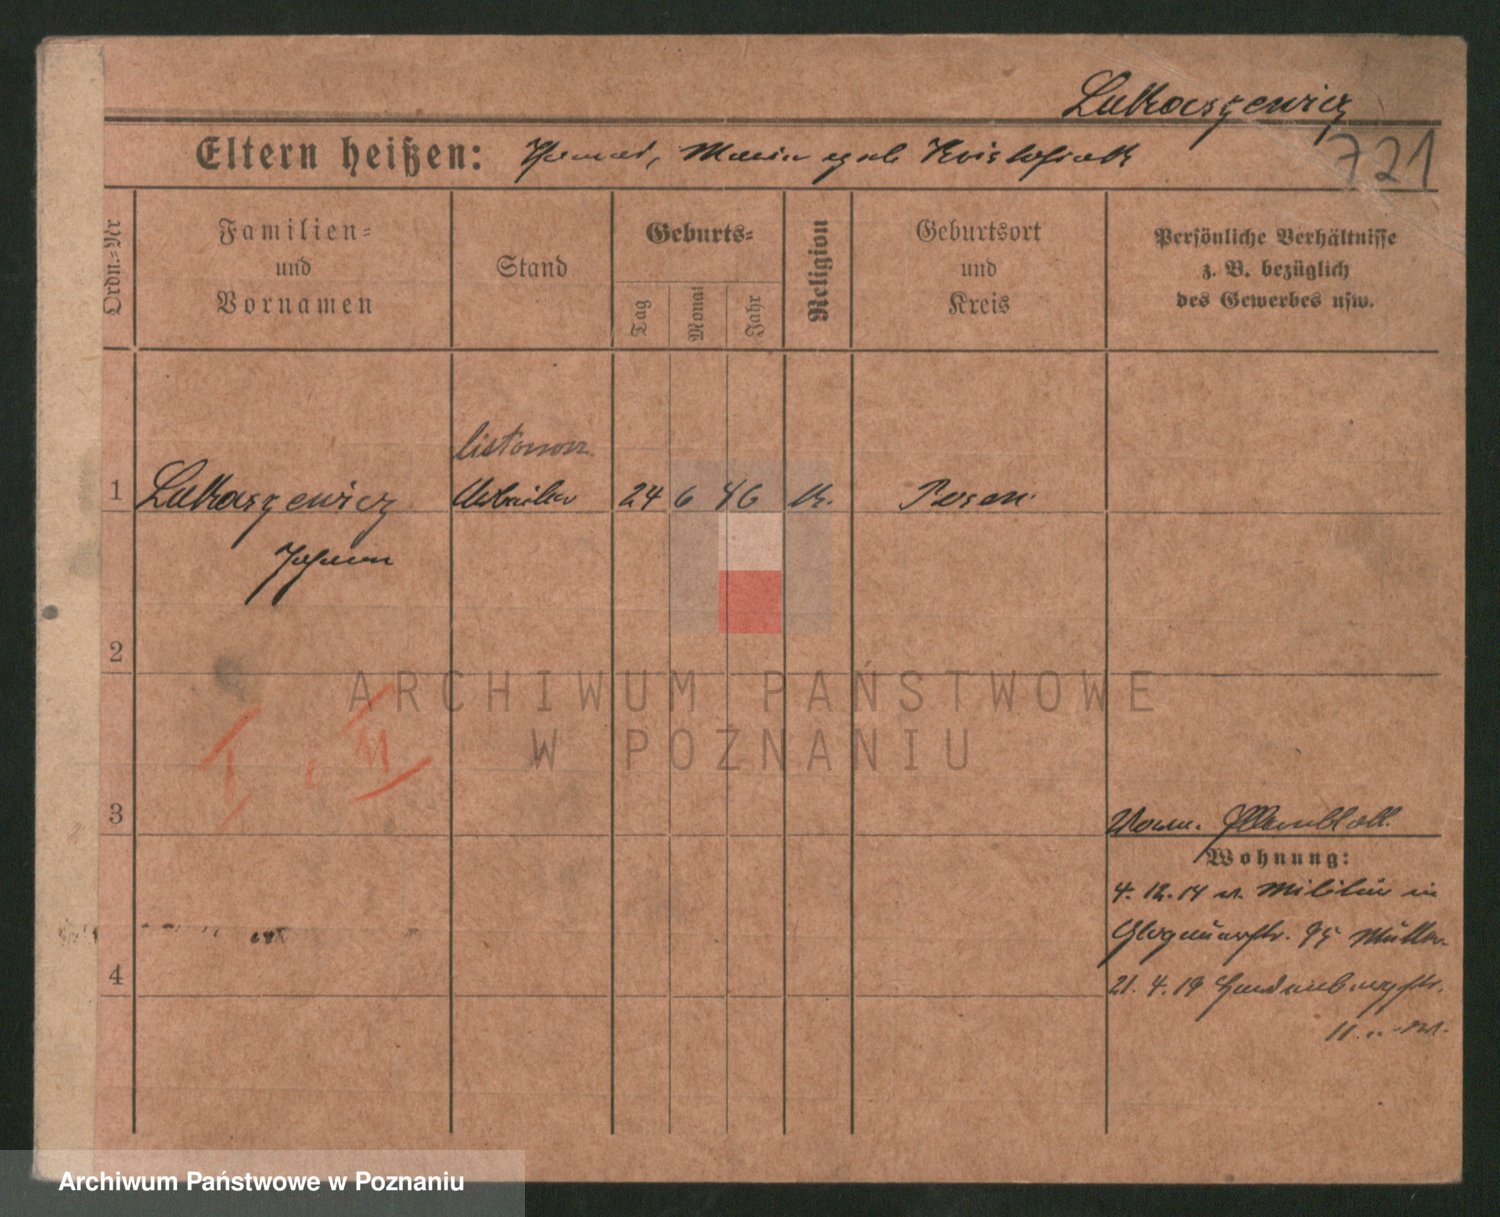 Lukaszewicz
721
Eltern heißen: Thomas, Maria geb.
Ordn.=Nr
Familien=
und
Vornamen
Stand
Geburts=
Tag
Monat
Jahr
Religion
Geburtsort
und
Kreis
Persönliche Verhältnisse
z. B. bezüglich
des Gewerbes usw.
listonosz
1 Lukaszewicz Arbeiter 24 6 K. Posen
Johann
2
ARCHIWUM PAŃSTWOWE
W POZNANIU
3
Wohnung:
4. 12. 14 v. Militär in
Glogauerstr. 95 Müller
4
21. 4. 19 Hindenburgstr.
11
Archiwum Państwowe w Poznaniu